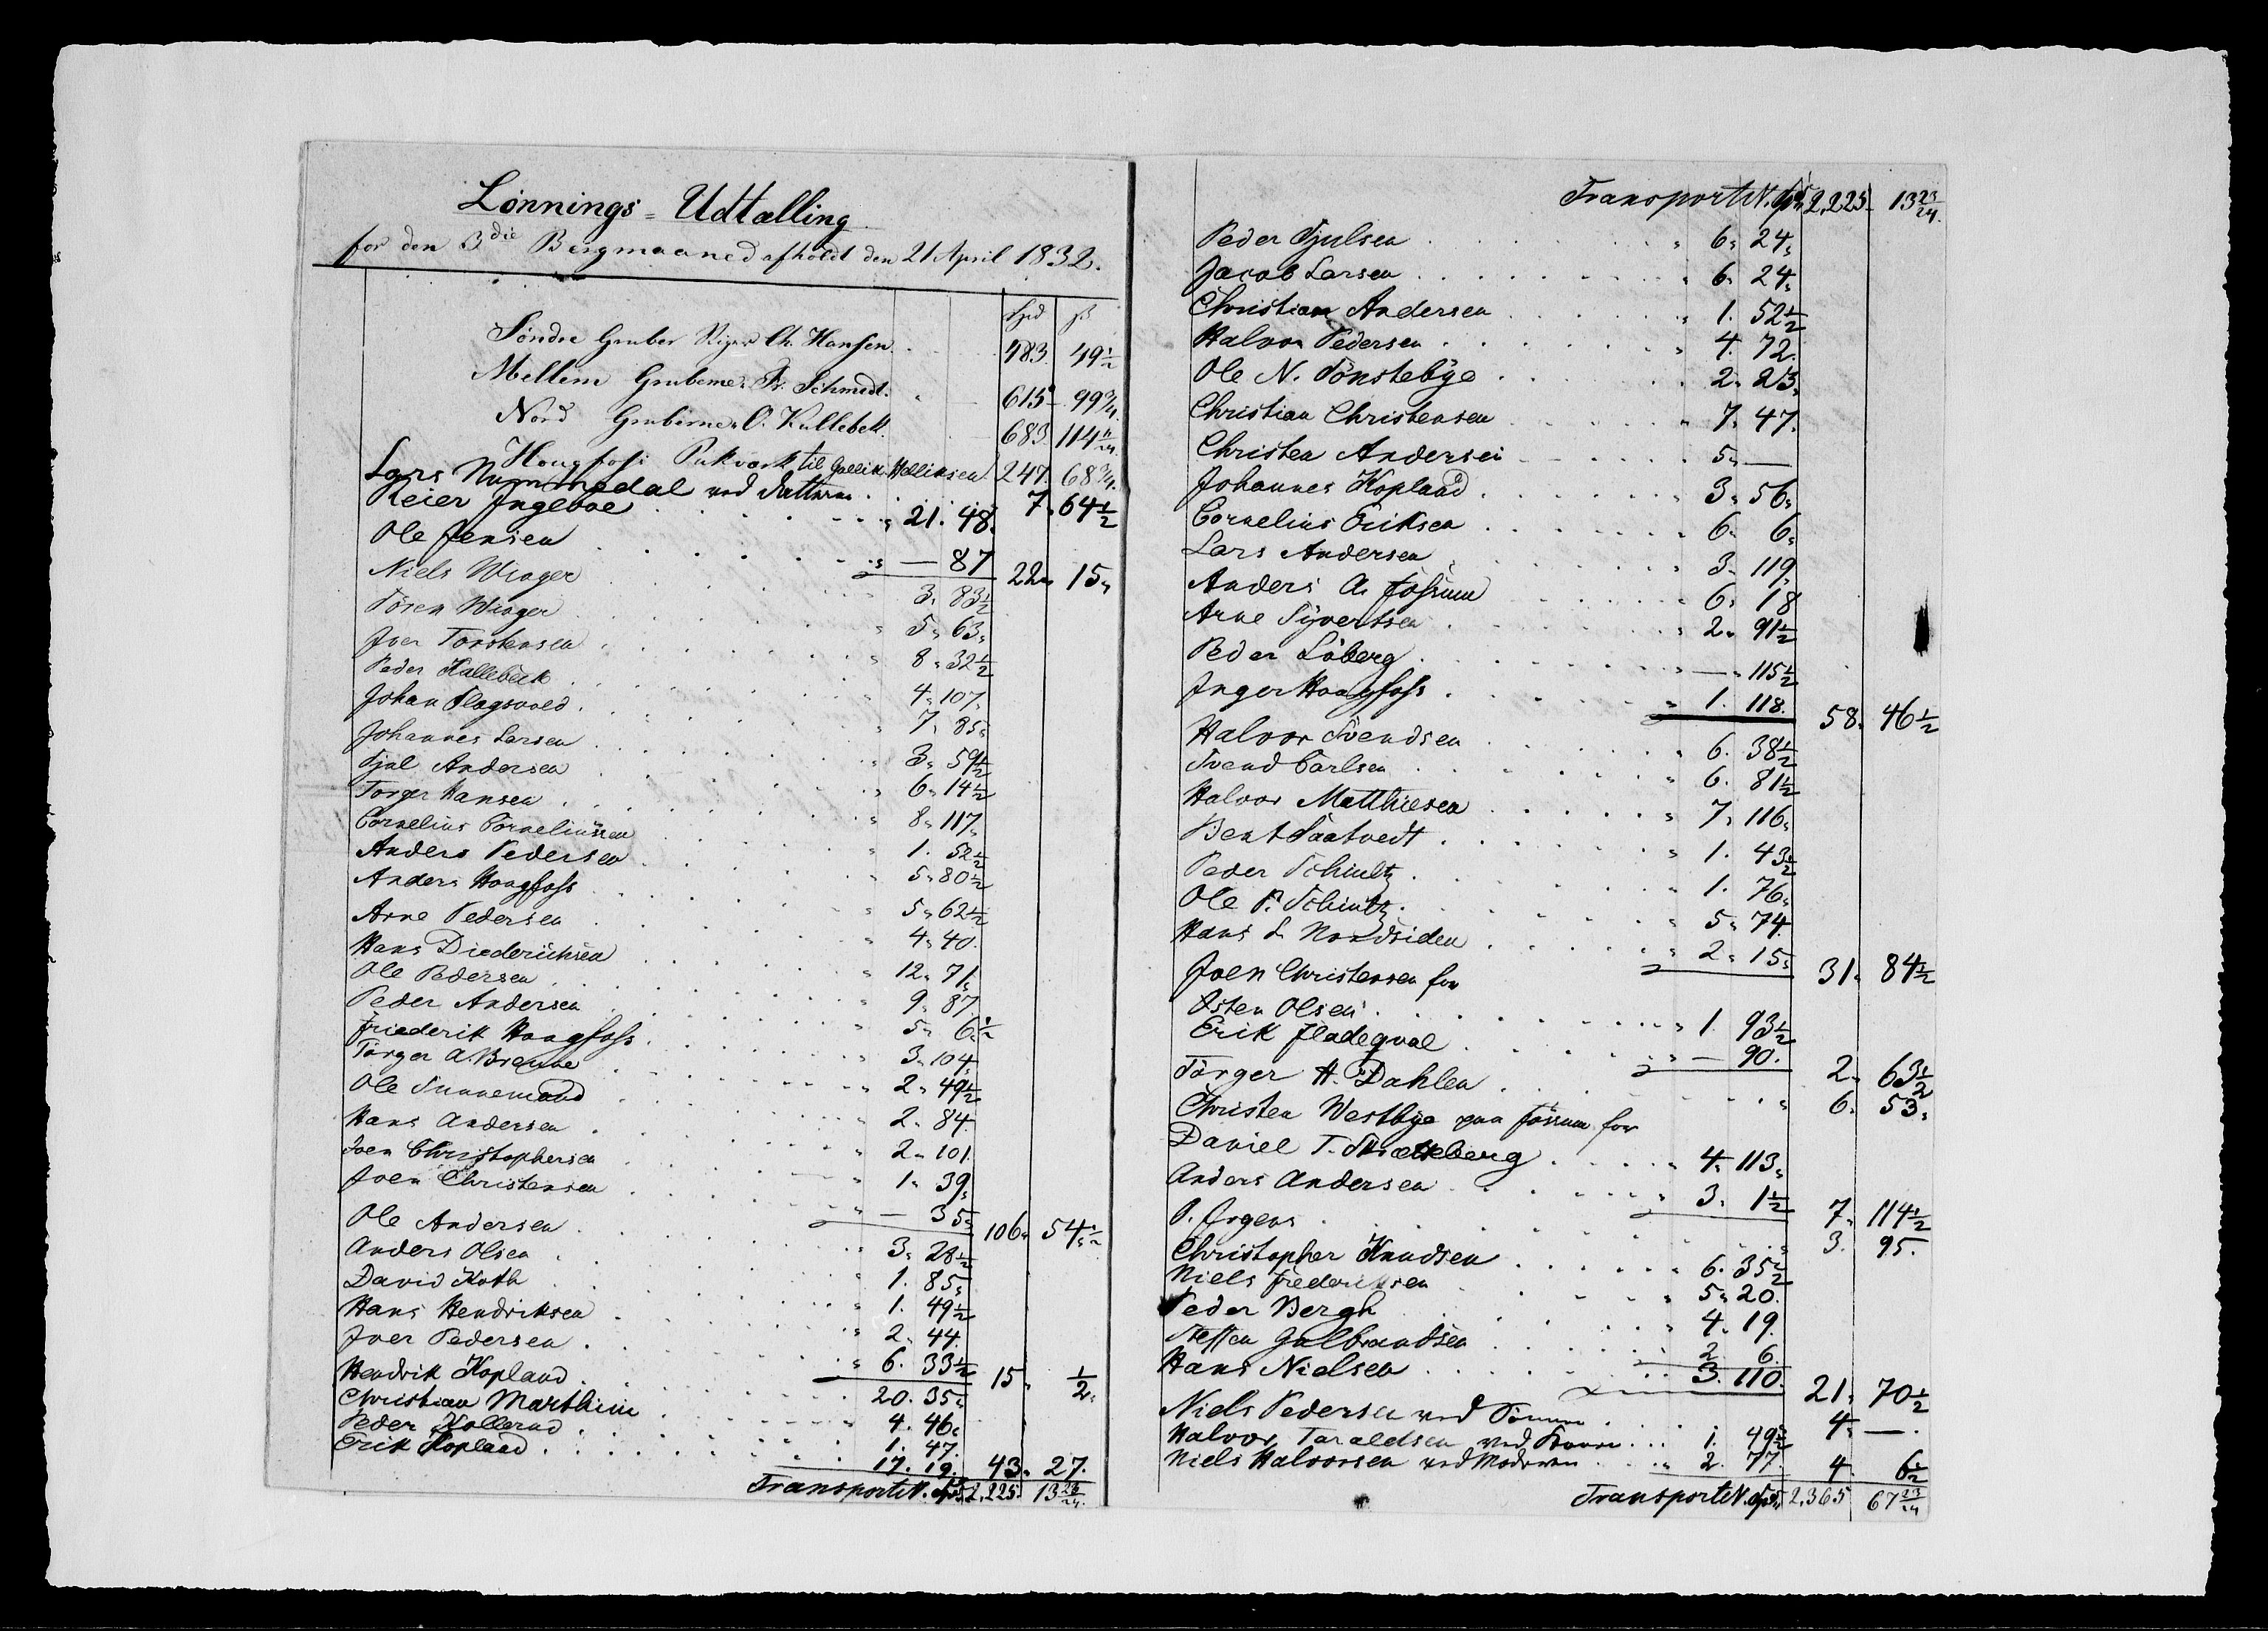 Lønnings = Udtælling
for den 3die Bergmaaned afholdt den 21 April 1832.
Spd ß
Søndre Gruber Ch. Hansen. 483. 49½
Mellem Gruberne Schmidt. 615 99¾
Nord Gruberne O. Kullebek. 683. 114 11/24
Hougfoss Pukværk til Gullik Helliksen 247. 68¾
Lars Nummedal ved 7. 64½
Reier Ingeboe 21. 48.
Ole Jensen — 87 22. 15.
Niels Winger 3. 83½
Tören Winger 5. 63.
Iver Torstensen 8. 32½
Peder Kallebæk 4. 107.
Johan Plagsvold 7. 85.
Johannes Larsen 3. 59½
Kjøl Andersen 6. 14½
Torger Hansen 8. 117.
Cornelius Corneliussen 1. 52½
Anders Pedersen 5. 80½
Anders Hougfoss 5. 62½
Arne Pedersen 4. 40.
Hans Diederichsen 12. 71.
Ole Pedersen 9. 87.
Peder Andersen 5. 6½
Friederik Hougfoss 3. 104.
Törger A. Brænne 2. 49½
Ole Sunnemand 2. 84
Hans Andersen 2. 101.
Joen Christophersen 1. 39.
Joen Christensen — 35. 106. 54½
Ole Andersen 3. 28½
Anders Olsen 1. 85.
David Koth 1. 49½
Hans Hendriksen 2. 44.
Iver Pedersen 6. 33½ 15. ½
Hendrik Kopland 20. 35.
Christian Marthini 4. 46.
Peder Kollerud 1. 47.
Erik Kopland 17. 19. 43. 27.
Transport N. Spd 2,225. 13 23/24
Transport N. Spd 2,225 13 23/24.
Peder Kjulsen 6. 24.
Jacob Larsen 6. 24.
Christian Andersen 1. 52½
Halvor Pedersen 4. 72.
Ole N. Tönstebye 2. 23.
Christian Christensen 7. 47.
Christen Andersen 5. —
Johannes Kopland 3. 56.
Cornelius Eriksen 6. 6.
Lars Andersen 3. 119.
Anders A. Fossum 6. 18
Arne Syvertsen 2. 91½
Peder Löberg — 115½
Inger Hougfoss 1. 118. 58. 46½
Halvor Svendsen 6. 38½
Svend Carlsen 6. 81½
Halvor Matthiesen 7. 116.
Bent Saatvedt 1. 43½
Peder Schultz 1. 76.
Ole P. Schultz 5. 74.
Hans L. Nordsiden 2. 15. 31. 84½
Joen Christensen for
Östen Olsen 1. 93½
Erik Fladeqval — 90. 2. 63½
Törger H. Dahlen 6. 53.
Christen Westbye paa Fossum for
Daniel T. 4. 113.
Anders Andersen 3. 1½ 7. 114½
P. Irgens 3. 95.
Christopher Knudsen 6. 35½
Niels Frederiksen 5. 20.
Peder Bergh 4. 19.
Steffen Gulbrandsen 2. 6.
Hans Nielsen 3. 110. 21. 70½
Niels Pedersen ved 4. —.
Halvor Taraldsen ved 1. 49½
Niels Halvorsen ved 2. 77. 4. 6½
Transport N. Spd 2,365 67 23/24